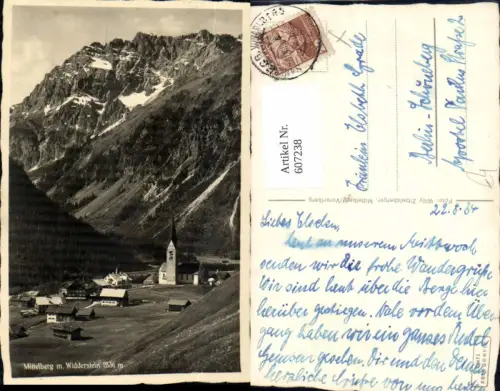 Mittelberg m. Widderstein, 2536 m
Artikel Nr.
607238
Fräulein Elsbeth
Berlin - Schöneberg
Foto: Willy Zittelsberger, Mittelberg/Vorarlberg
22.8.34
Liebes Elschen,
heut an unserem Mittwoch
senden wir Die frohe Wandergrüße
Wir sind heut über die Berge hier
herüber gestiegen. Nahe vor dem Über
gang haben wir ein ganzes Rudel
Gemsen gesehen. Dir und den Deinen
herzliche Grüße von uns